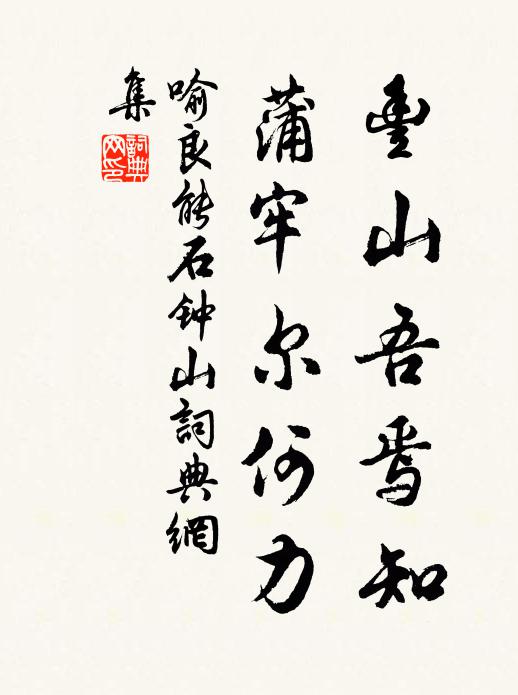 豊山吾焉知
蒲牢尔何力
喻良能石钟山詞典網
集
詞典
网印